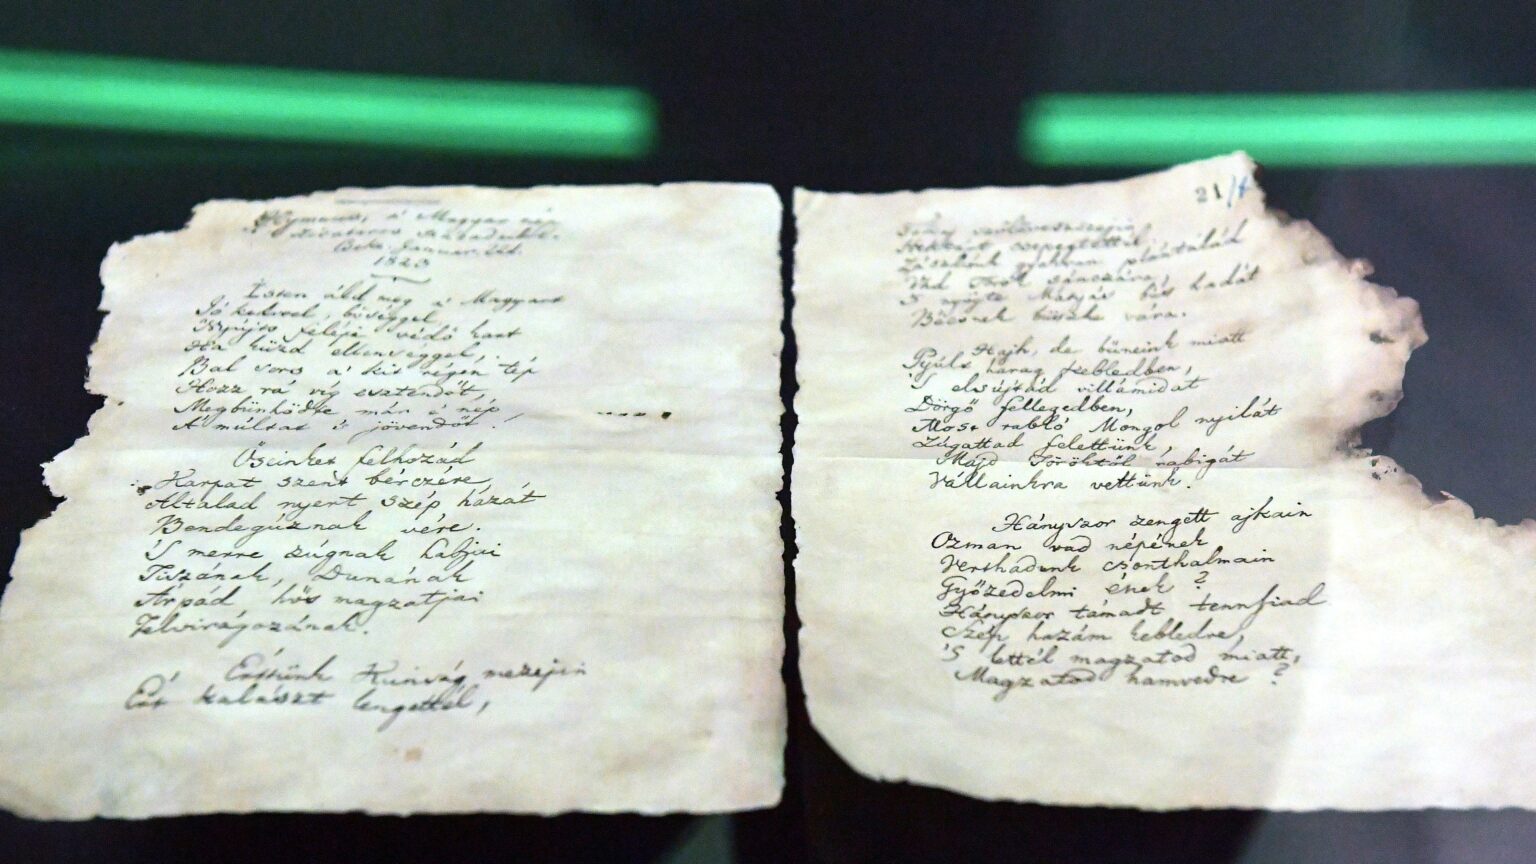 Hymnus, a' Magyar nép
zivataros századaiból.
Cseke. Januar. 22d.
1823
Isten áldd meg a' Magyart
Jó kedvvel, bőséggel,
Nyújts feléje védő kart
Ha küzd ellenséggel,
Bal sors a' kit régen tép
Hozz rá víg esztendőt,
Megbünhödte már e' nép
A' múltat 's jövendőt!
Őseinket felhozád
Kárpát szent bérczére,
Általad nyert szép hazát
Bendegúznak vére.
'S merre zúgnak habjai
Tiszának, Dunának
Árpád hős magzatjai
Felvirágozának.
Értünk Kunság mezejin
Ért kalászt lengettél,
21/
Tokaj szőlővesszejin
Nektárt csepegtettél.
Zászlónk gyakran plántálád
Vad Török sánczára,
'S nyögte Mátyás bús hadát
Bécsnek büszke vára.
Hajh, de bűneink miatt
Gyúlt harag kebledben,
'S elsújtád villámidat
Dörgő fellegedben,
Most rabló Mongol nyilát
Zúgattad felettünk,
Majd Töröktől rabigát
Vállainkra vettünk.
Hányszor zengett ajkain
Ozman vad népének
Vert hadunk csonthalmain
Győzedelmi ének?
Hányszor támadt tennfiad
Szép hazám kebledre,
'S lettél magzatod miatt,
Magzatod hamvedre?